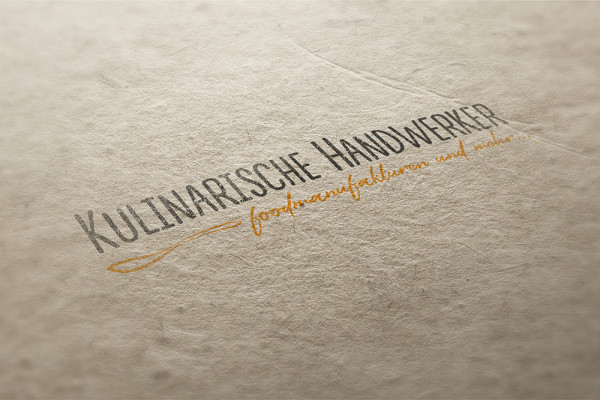 KULINARISCHE HANDWERKER
foodmanufakturen und mehr...